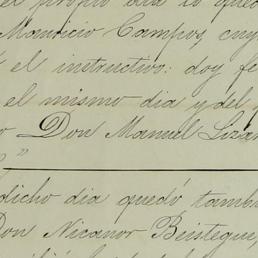 el propio dia lo qued
Mauricio Campos, cuy
el instructivo: doy fe
el mismo dia y del
Don Manuel Lizar
"
dicho dia quedó tamb
Don Nicanor Beistegui,